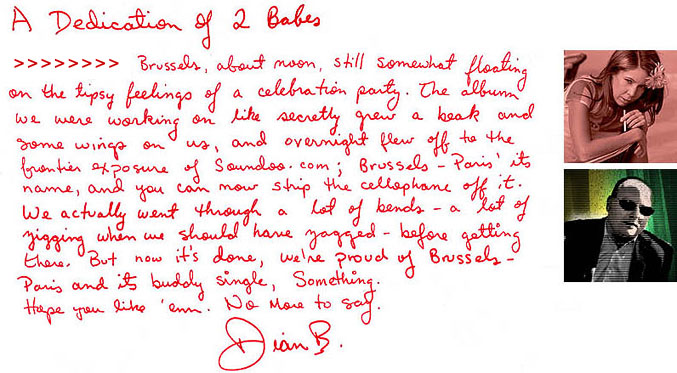 A Dedication of 2 Babes
>>>>>>>> Brussels, about noon, still somewhat floating
on the tipsy feelings of a celebration party. The album
we were working on like secretly grew a beak and
some wings on us, and overnight flew off to the
frontier exposure of Soundoo.com; Brussels - Paris' its
name, and you can now strip the cellophane off it.
We actually went through a lot of bends - a lot of
zigging when we should have zagged - before getting
there. But now it's done, we're proud of Brussels -
Paris and its buddy single, Something.
Hope you like 'em. No more to say.
Dian B.